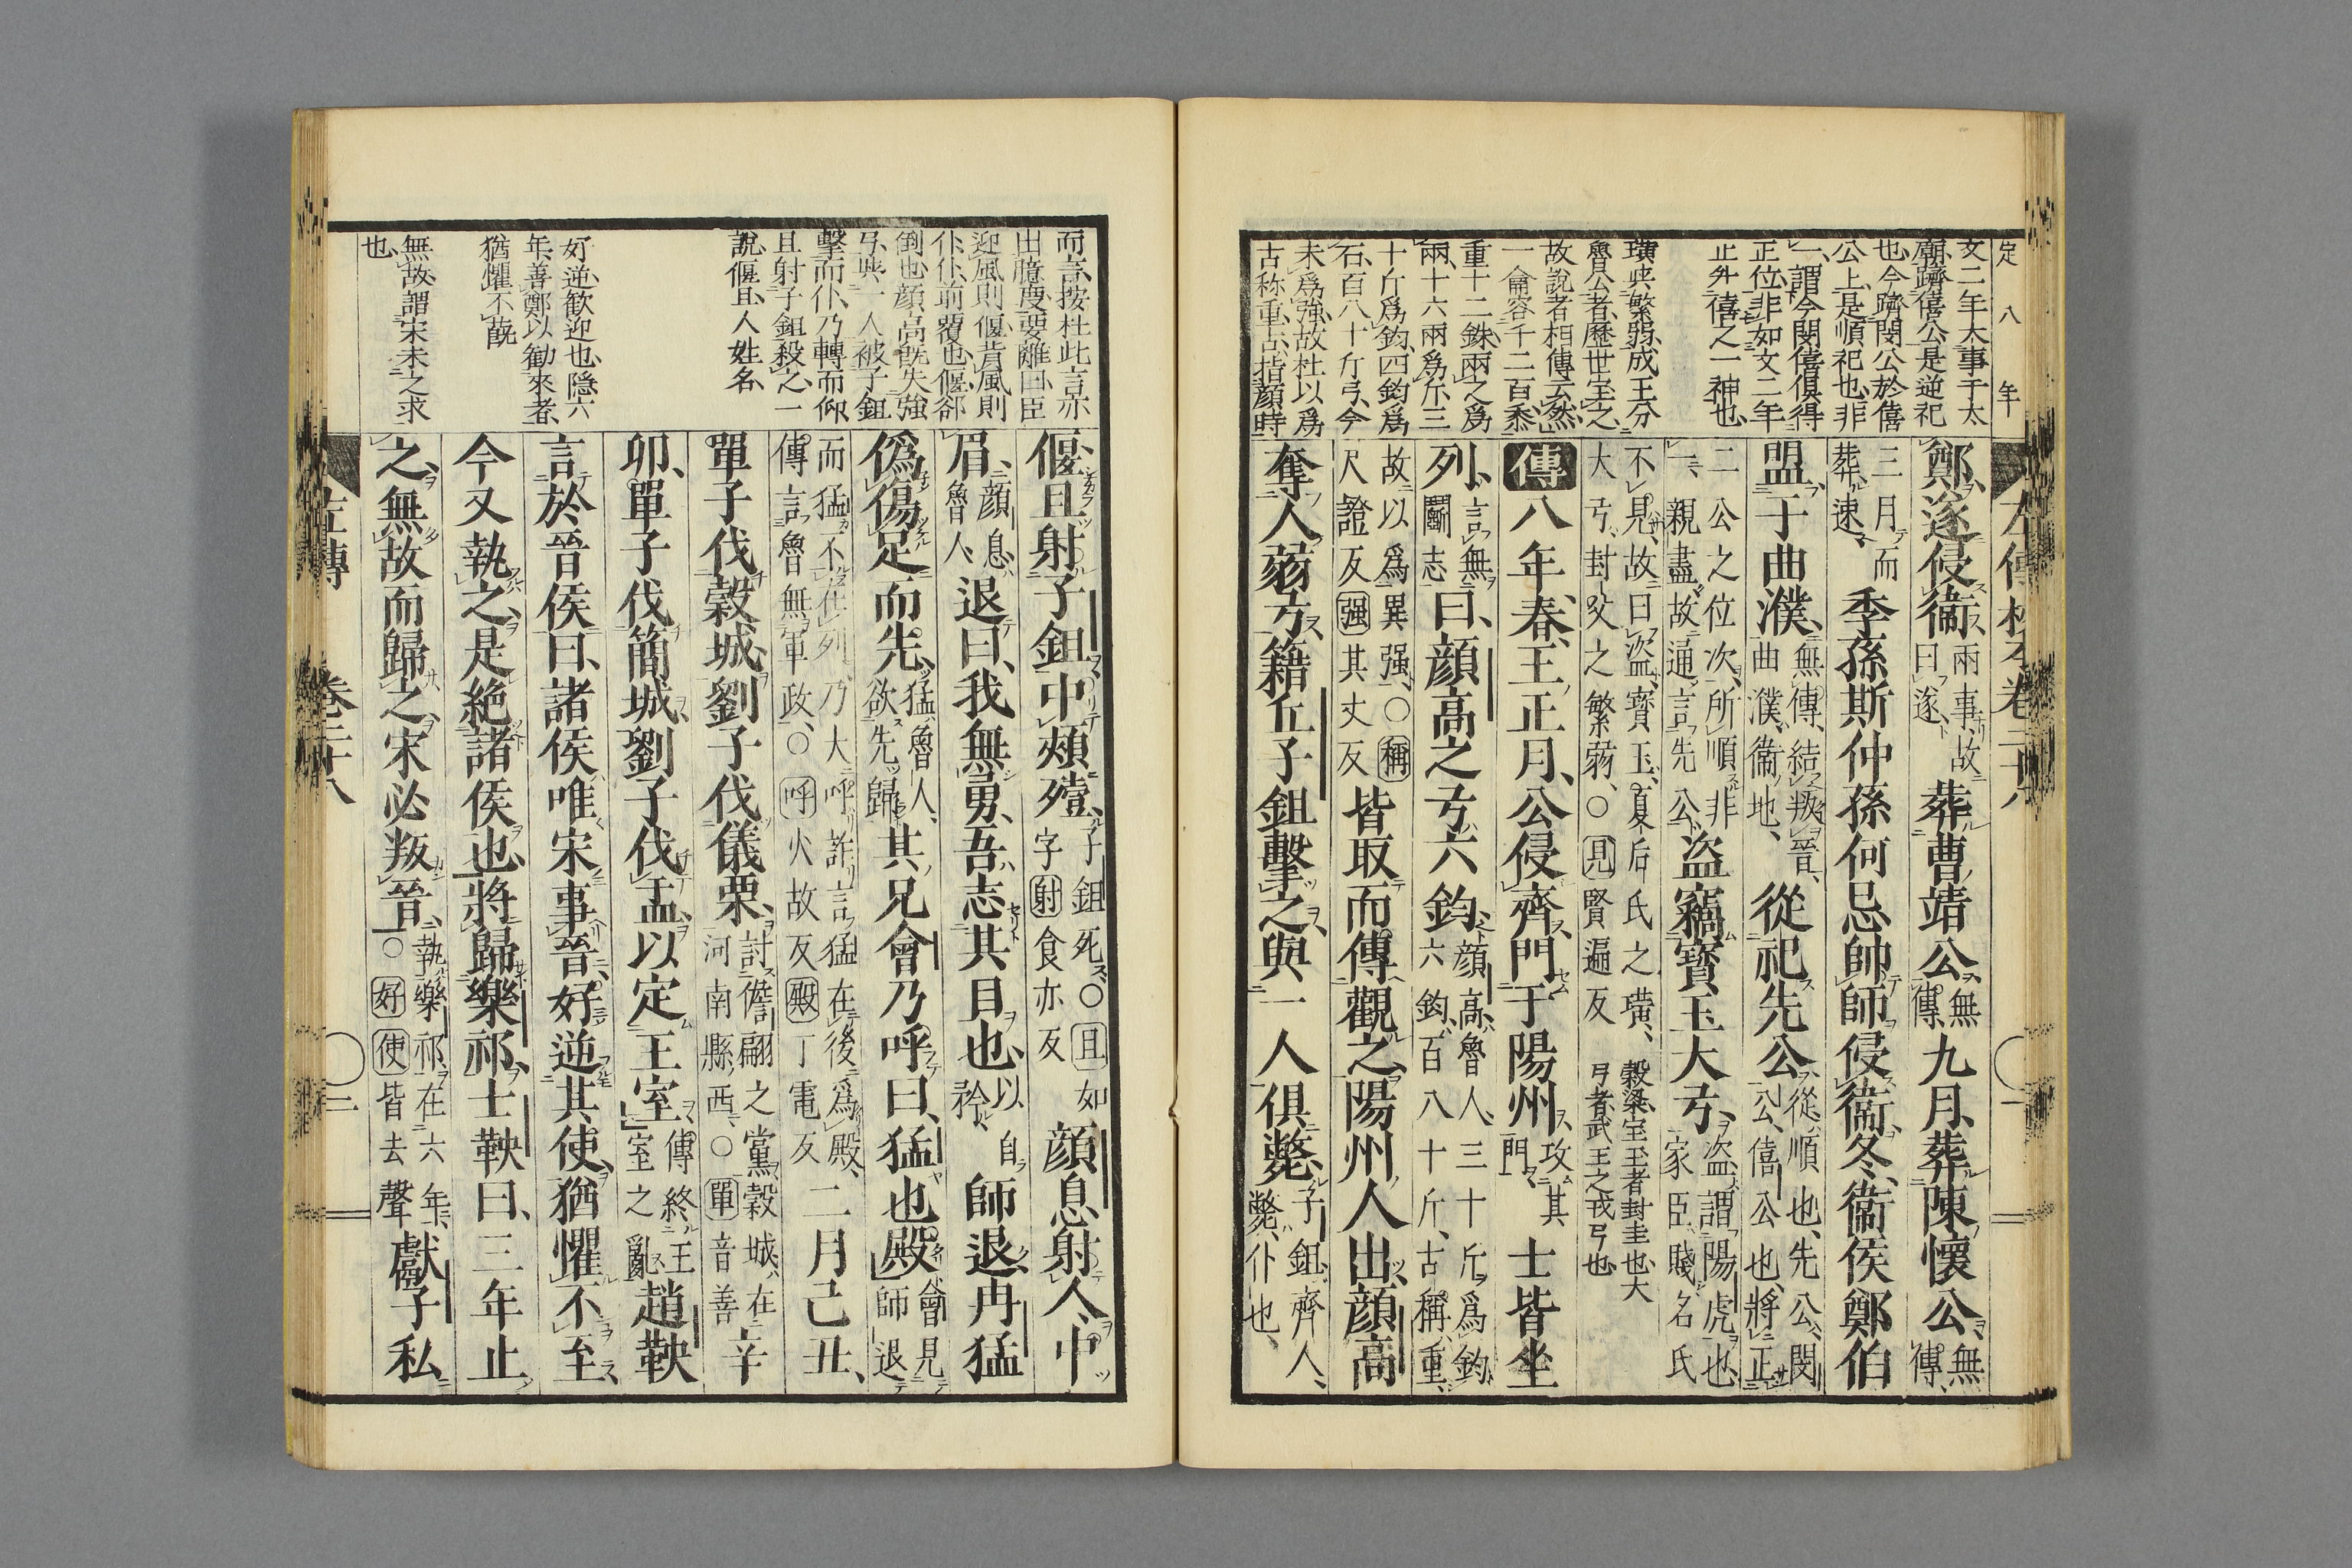 定八年
文二年大事于太
廟躋僖公是逆祀
也今躋閔公於僖
公上是順祀也非
謂今閔僖俱得
正位非如文二年
止外僖之一神也
璜與繁弱成王分
魯公者歷世寶之
故說者相傳云然
一龠容千二百黍
重十二銖兩之爲
兩十六兩爲斤三
十斤爲鈞四鈞爲
石百八十斤弓今
未爲強故杜以爲
古称重古指顔時
左傳校本卷二十八
鄭遂侵衞兩事故曰遂葬曹靖公無傳九月葬陳懷公無傳
三月而葬速季孫斯仲孫何忌帥師侵衞冬衞侯鄭伯
盟于曲濮無傳結叛晉曲濮衞地從祀先公從順也先公閔公僖公也將正
二公之位次所順非一親盡故通言先公盜竊寶玉大弓盜謂陽虎也家臣賤名氏
不見故曰盜寶玉夏后氏之璜大弓封父之繁弱○見賢遍反穀梁寶玉者封圭也大弓者武王之戎弓也
傳八年春王正月公侵齊門于陽州攻其門士皆坐
列言無鬭志曰顔高之弓六鈞顔高魯人三十斤爲鈞六鈞百八十斤古稱重
故以爲異强○稱尺證反强其丈反皆取而傳觀之陽州人出顔高
奪人弱弓籍丘子鉏擊之與一人俱斃子鉏齊人斃仆也
而言按杜此言亦
出臆度要離曰臣
迎風則偃背風則
仆仆前覆也偃郤
倒也顔高既失強
弓與一人被子鉏
擊而仆乃轉而仰
且射子鉏殺之一
說偃且人姓名
好逆歓迎也隱六
年善鄭以勸來者
猶懼不蓺
無故謂宋未之求
也
偃且射子鉏中頰殪子鉏死○且如字射食亦反顔息射人中
眉顔息魯人退曰我無勇吾志其目也以自矜師退冉猛
僞傷足而先猛魯人欲先歸其兄會乃呼曰猛也殿會見師退
而猛不在列乃大呼詐言猛在後爲殿傳言魯無軍政○呼火故反殿丁電反二月己丑
單子伐穀城劉子伐儀栗討儋翩之黨穀城在河南縣西○單音善辛
卯單子伐簡城劉子伐盂以定王室傳終王室之亂趙鞅
言於晉侯曰諸侯唯宋事晉好逆其使猶懼不至
今又執之是絕諸侯也將歸樂祁士鞅曰三年止
之無故而歸之宋必叛晉執樂祁在六年○好使皆去聲獻子私
左傳 卷二十八 二